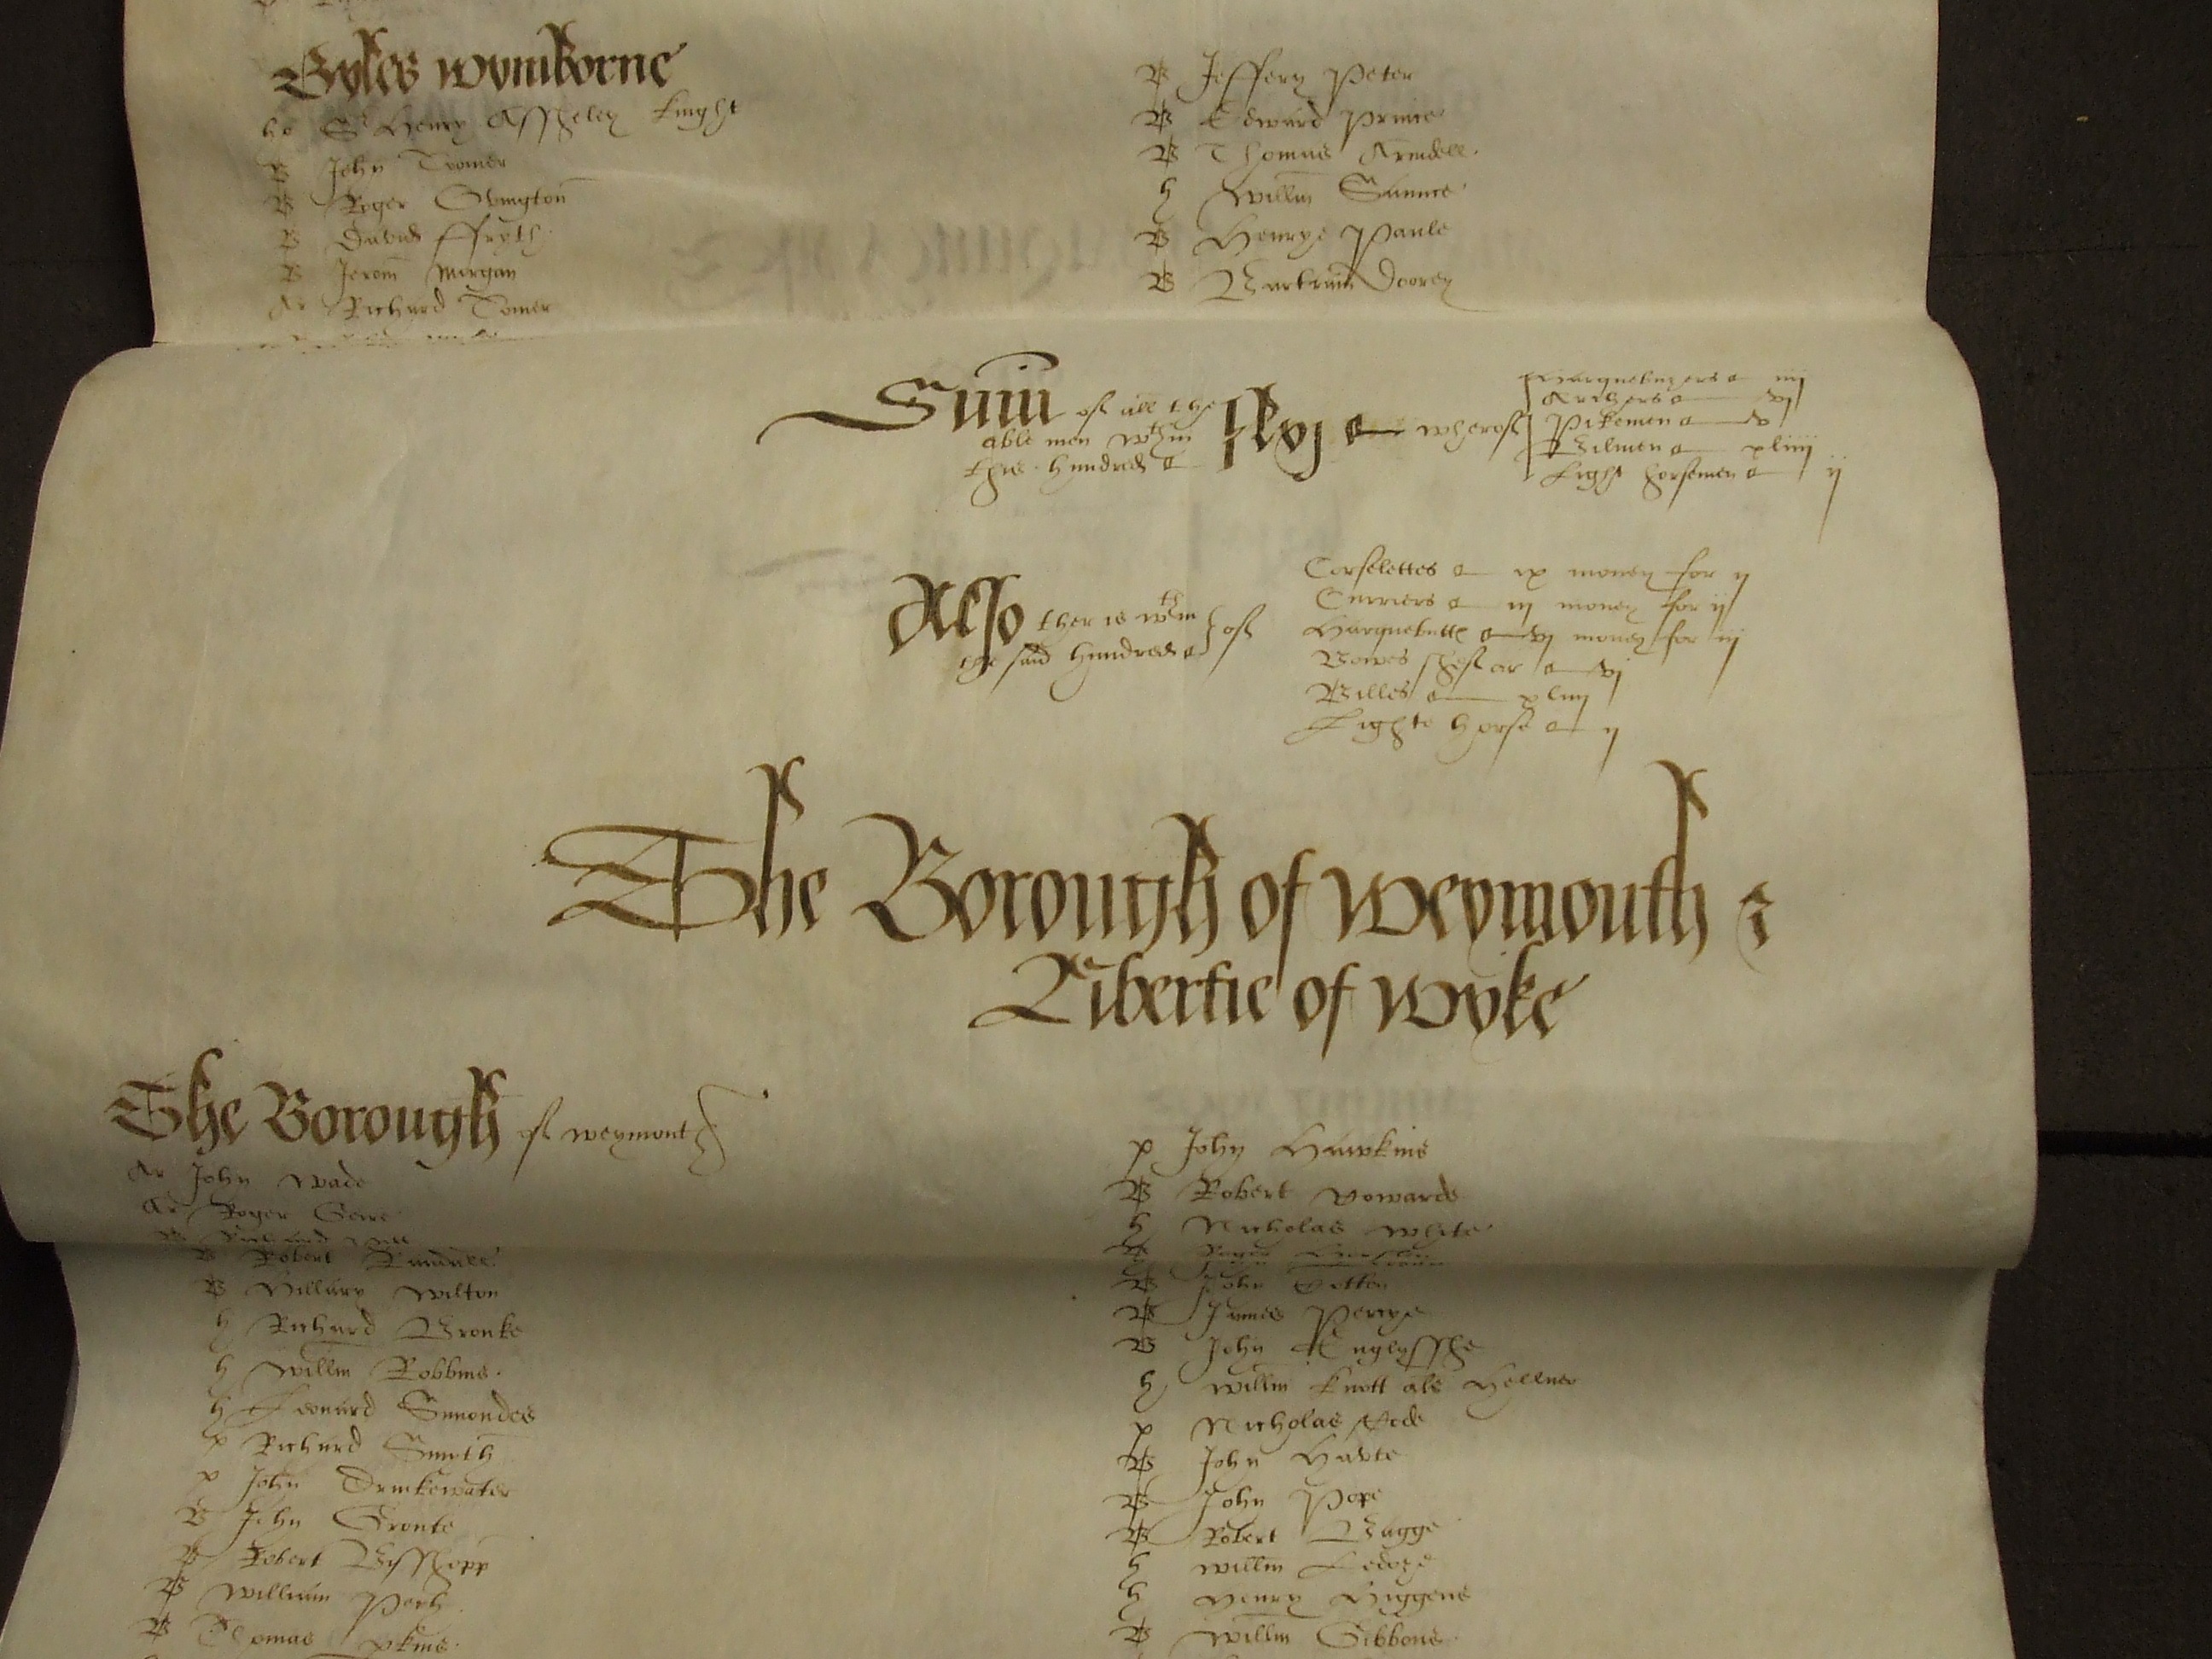 Gyles wymborne
ho Sr Henry Assheley knight
B John Tromer
B Roger Ovington
B David ffryth
B Jerom Morgan
Ar Richard Tomer
B Jeffery Peter
B Edward Prince
B Thomas Arundell
h Willm
B Henrye Paule
B Bartram Doorey
Sum of all the
able men wthin
this hundred
lxvj wherof
Harquebuzers iiij
Archers vj
Pikemen v
Bilmen xliiij
Light horsemen ij
Also ther is wthin
the said hundred of
Corselettes ix money for ij
Curriers iij money for ij
Harquebutts vj money for iij
Bowes shef ar vj
Billes xliiij
Lighte horse ij
The Borough of Weymouth &
Libertie of Wyke
The Borough of weymouth
Ar John Wade
Ar Roger Geire
B Richard
B Robert Randall
B Hillary Wilton
h Richard Brouke
h Willm Robbins
h Leonard Simondes
p Richard Smyth
p John Drinkewater
B John
B Robert Bysshopp
B William
B Thomas
p John Hawkins
B Robert
h Nicholas White
B Roger
B John
B James Percye
B John Englysshe
h Willm Knott als Hellner
p Nicholas
B John
B John Pope
B Robert Bagge
h Willm
h Henry Higgens
B Willm Gibbons